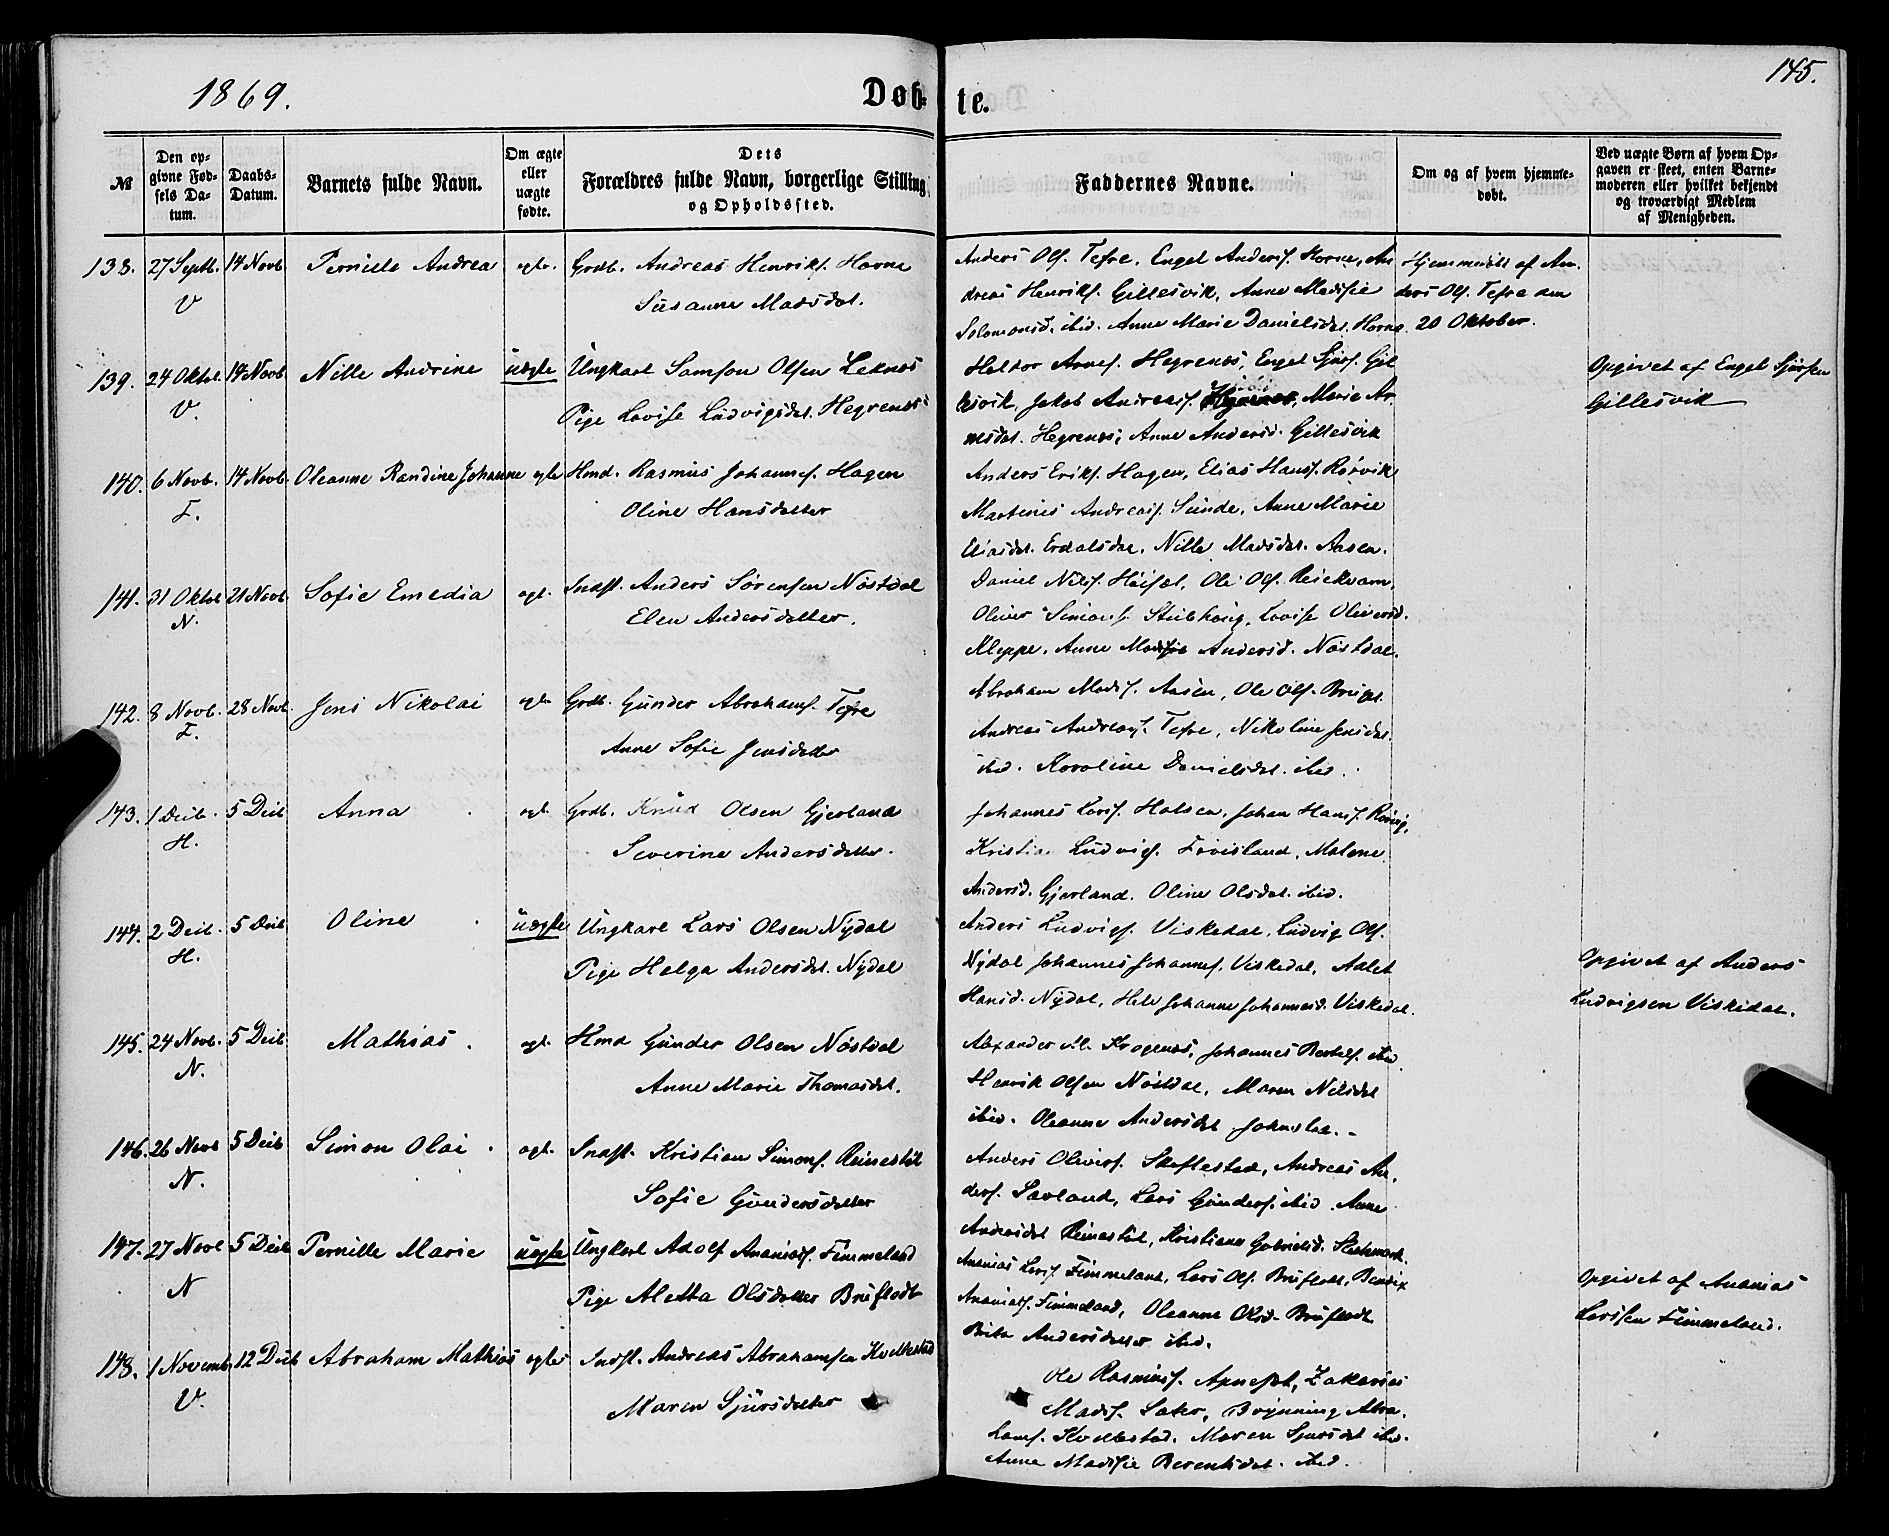 1869.
Døb-
te.
145.
№
Den op-
givne Fød-
sels Da-
tum.
Daabs-
Datum.
Barnets fulde Navn.
Om ægte
eller
uægte
fødte.
Dets
Forældres fulde Navn, borgerlige Stilling
og Opholdssted.
Faddernes Navne.
Om og af hvem hjemme-
døbt.
Ved uægte Børn af hvem Op-
gaven er skeet, enten Barne-
moderen eller hvilket bekjendt
og troværdigt Medlem
af Menigheden.
138. 27 Septb. 14 Novb. Pernille Andrea egte. Grdb. Andreas Henriks. Horne
V Susanne Madsdat.
Anders Ols. Tefre, Engel Anders. Horne, An
dreas Henriks. Gillesvik, Anne Madsie
Solomonsd. ibid. Anne Marie Danielsdat. Horne
Hjemmedøbt af An-
ders Ols. Tefre den
20 Oktober.
139. 24 Oktbr. 14 Novb. Nille Andrine uægte Ungkarl Samson Olsen Leknes
V. Pige Lovise Ludvigsdat. Hegrenes
Heldor Arnes. Hegrenes, Engel Sjurs. Gil
lesvik, Jakob Andreass. Marie Ar
nesdat. Hegrenes, Anne Andersd. Gillesvik
Opgivet af Engel Sjursen
Gillesvik
140. 6 Novb. 14 Novb. Oleanne Randine Johanne egte Hmd. Rasmus Johannes. Hagen
F. Oline Hansdatter
Anders Eriks. Hagen, Elias Hans. Rørvik
Martinus Andreass. Sunde, Anne Marie
Eliasdat. Erdalsdal, Nille Madsdat. Aasen.
141. 31 Oktbr 21 Novb. Sofie Emedia egt. Indst. Anders Sørensen Nøstdal
N. Elen Andersdatter.
Daniel Nils. Ole Ols. Reiekvam,
Oliver Simons. Stubhoug, Lovise Oliversd.
Kleppe, Anne Madsie Andersd. Nøstdal.
142. 8 Novb. 28 Novb. Jens Nikolai egte Grdb. Gunder Abrahams. Tefre
F. Anne Sofie Jensdatter
Abraham Mads. Aasen, Ole Ols.
Andreas Andreass. Tefre, Nikoline Jensdat.
ibid. Karoline Danielsdat. ibid.
143. 1 Decb. 5 Decb Anna egt. Grdb. Knud Olsen Gjerland
H. Severine Andersdatter.
Johannes Lars. Halsen, Johan Hans.
Kristian Ludvigs. Førisland, Malene
Andersd. Gjerland. Oline Olsdat. ibid.
144. 2 Decb. 5 Decb Oline uægte Ungkarl Lars Olsen Nydal
H. Pige Helga Andersdat. Nydal
Anders Ludvigs. Viskedal, Ludvig Ols.
Nydal Johannes Johannes. Viskedal, Adlet
Hansd. Nydal, Johanne Johannesd. Viskedal.
Opgivet af Anders
Ludvigsen Viskedal.
145. 24 Novb. 5 Decb Mathias. egt. Hmd Gunder Olsen Nøstdal
N. Anne Marie Thomasdat.
Alexander Krogenes, Johannes Bertels. ibid
Henrik Olsen Nøstdal, Maren Nilsdat
ibid. Oleanne Andersdat
146. 26 Novb 5 Decb Simon Olai egt. Indst. Kristian Simons. Reinestøl
N. Sofie Gundersdatter
Anders Olivers. Skeflestad, Andreas An-
ders. Savland, Lars Gunders. ibid. Anne
Andersdat Reinestøl, Kristiane Gabrielsd.
147. 27 Novb 5 Decb Pernille Marie uægte Ungkarl Adolf Ananiass. Fimmeland
N Pige Aletta Olsdatter Bruflodt
Ananias Lars. Fimmeland, Lars Ols. Bruflodt, Bendix
Ananiass. Fimmeland, Oleanne Olsd. Bruflodt
Brita Andersdatter ibid.
Opgivet af Ananias
Larssen Fimmeland.
148. 1 Novemb. 12 Decb Abraham Mathias egte Indst. Andreas Abrahamsen Kvellestad
V. Maren Sjursdatter
Ole Rasmus. Zakarias
Mads. Brynning Abra-
hams. Kvellestad, Maren Sjursdat ibid.
Anne Madsie Berentsdat. ibid.